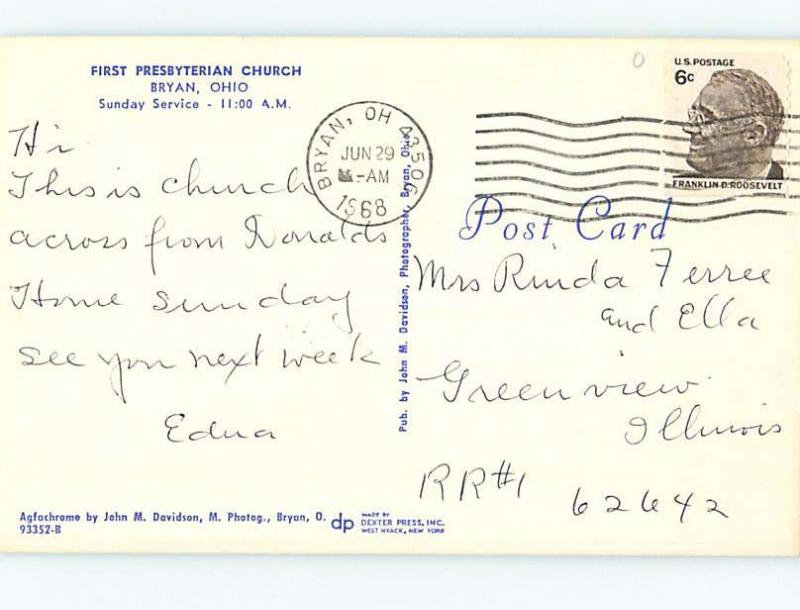 FIRST PRESBYTERIAN CHURCH
BRYAN, OHIO
Sunday Service - 11:00 A.M.
Hi
This is church
across from Ronalds
Home sunday
see you next week
Edna
Agfachrome by John M. Davidson, M. Photog., Bryan, O.
93352-B
dp
MADE BY
DEXTER PRESS, INC.
WEST NYACK, NEW YORK
Pub. by John M. Davidson, Photographer, Bryan, Ohio
BRYAN, OH 43506
JUN 29
-AM
1968
U.S. POSTAGE
6c
FRANKLIN D. ROOSEVELT
Post Card
Mrs Rinda Ferree
and Ella
Greenview
Illinois
RR#1
62642